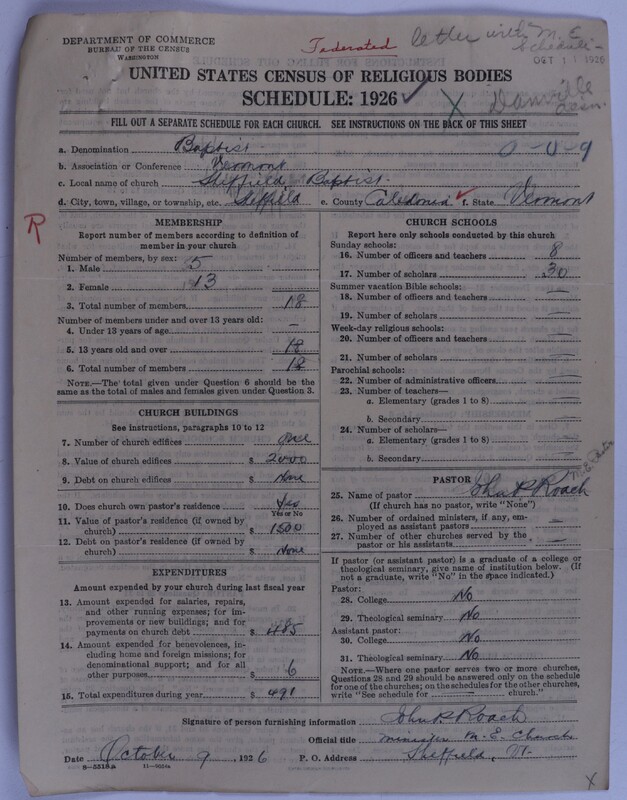 DEPARTMENT OF COMMERCE
BUREAU OF THE CENSUS
WASHINGTON
Federated
letter with M. E.
Schedule-
OCT 11 1926
UNITED STATES CENSUS OF RELIGIOUS BODIES
SCHEDULE: 1926 ✓
X
Danville
FILL OUT A SEPARATE SCHEDULE FOR EACH CHURCH. SEE INSTRUCTIONS ON THE BACK OF THIS SHEET
a. Denomination Baptist
0-0-9
b. Association or Conference Vermont
c. Local name of church Sheffield Baptist
d. City, town, village, or township, etc. Sheffield e. County Caledonia ✓ f. State Vermont
R
MEMBERSHIP
Report number of members according to definition of member in your church
Number of members, by sex:
1. Male 5
2. Female 13
3. Total number of members 18
Number of members under and over 13 years old:
4. Under 13 years of age —
5. 13 years old and over 18
6. Total number of members 18
NOTE.—The total given under Question 6 should be the
same as the total of males and females given under Question 3.
CHURCH BUILDINGS
See instructions, paragraphs 10 to 12
7. Number of church edifices One
8. Value of church edifices $ 2000
9. Debt on church edifices $ None
10. Does church own pastor's residence Yes
Yes or No
11. Value of pastor's residence (if owned by
church) $ 1500
12. Debt on pastor's residence (if owned by
church) $ None
EXPENDITURES
Amount expended by your church during last fiscal year
13. Amount expended for salaries, repairs,
and other running expenses; for im-
provements or new buildings; and for
payments on church debt $ 485
14. Amount expended for benevolences, in-
cluding home and foreign missions; for
denominational support; and for all
other purposes $ 6
15. Total expenditures during year $ 491
CHURCH SCHOOLS
Report here only schools conducted by this church
Sunday schools:
16. Number of officers and teachers 8
17. Number of scholars 30
Summer vacation Bible schools:
18. Number of officers and teachers —
19. Number of scholars —
Week-day religious schools:
20. Number of officers and teachers —
21. Number of scholars —
Parochial schools:
22. Number of administrative officers —
23. Number of teachers—
a. Elementary (grades 1 to 8) —
b. Secondary —
24. Number of scholars—
a. Elementary (grades 1 to 8) —
b. Secondary —
PASTOR
25. Name of pastor John R Roach
(If church has no pastor, write "None")
26. Number of ordained ministers, if any, em-
ployed as assistant pastors —
27. Number of other churches served by the
pastor or his assistants —
If pastor (or assistant pastor) is a graduate of a college or
theological seminary, give name of institution below. (If
not a graduate, write "No" in the space indicated.)
Pastor:
28. College No
29. Theological seminary No
Assistant pastor:
30. College No
31. Theological seminary No
NOTE.—Where one pastor serves two or more churches,
Questions 28 and 29 should be answered only on the schedule
for one of the churches; on the schedules for the other churches,
write "See schedule for church."
Signature of person furnishing information John R Roach
Official title minister M. E. Church
Date October 9, 1926 P. O. Address Sheffield, Vt.
8—5318a 11—9024a
X